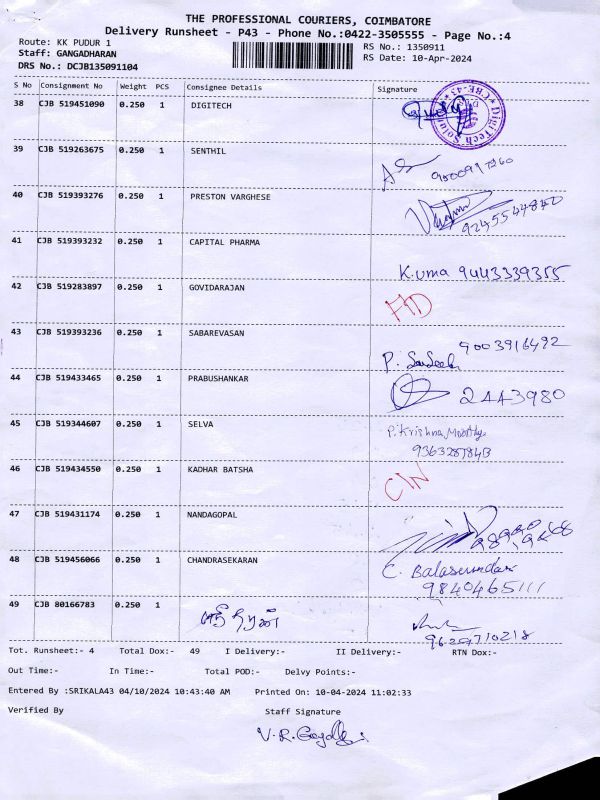 THE PROFESSIONAL COURIERS, COIMBATORE
Delivery Runsheet - P43 - Phone No.:0422-3505555 - Page No.:4
Route: KK PUDUR 1 RS No.: 1350911
Staff: GANGADHARAN RS Date: 10-Apr-2024
DRS No.: DCJB135091104
S No Consignment No Weight PCS Consignee Details Signature
38 CJB 519451090 0.250 1 DIGITECH
39 CJB 519263675 0.250 1 SENTHIL
40 CJB 519393276 0.250 1 PRESTON VARGHESE
41 CJB 519393232 0.250 1 CAPITAL PHARMA
K.uma 9443339355
42 CJB 519283897 0.250 1 GOVIDARAJAN
43 CJB 519393236 0.250 1 SABAREVASAN
9003916492
44 CJB 519433465 0.250 1 PRABUSHANKAR
2443980
45 CJB 519344607 0.250 1 SELVA
P. Krishna
46 CJB 519434550 0.250 1 KADHAR BATSHA
47 CJB 519431174 0.250 1 NANDAGOPAL
48 CJB 519456066 0.250 1 CHANDRASEKARAN
9840465111
49 CJB 80166783 0.250 1
Tot. Runsheet:- 4 Total Dox:- 49 I Delivery:- II Delivery:- RTN Dox:-
Out Time:- In Time:- Total POD:- Delvy Points:-
Entered By :SRIKALA43 04/10/2024 10:43:40 AM Printed On: 10-04-2024 11:02:33
Verified By Staff Signature